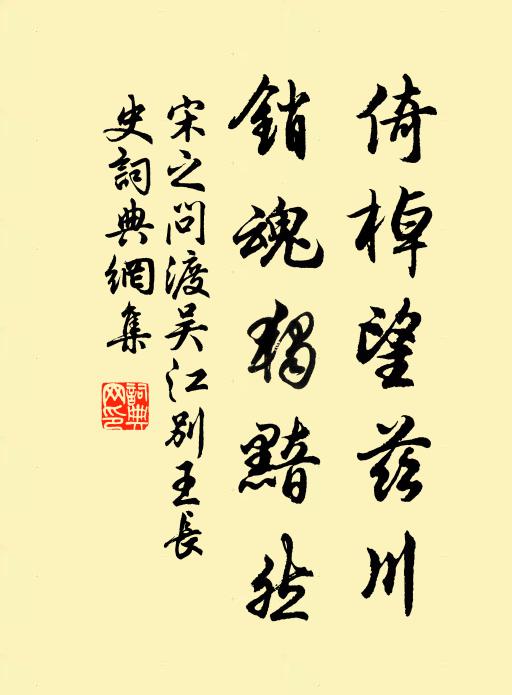 倚棹望兹川
銷魂獨黯然
宋之问渡吴江别王長
史詞典網集
詞典网印